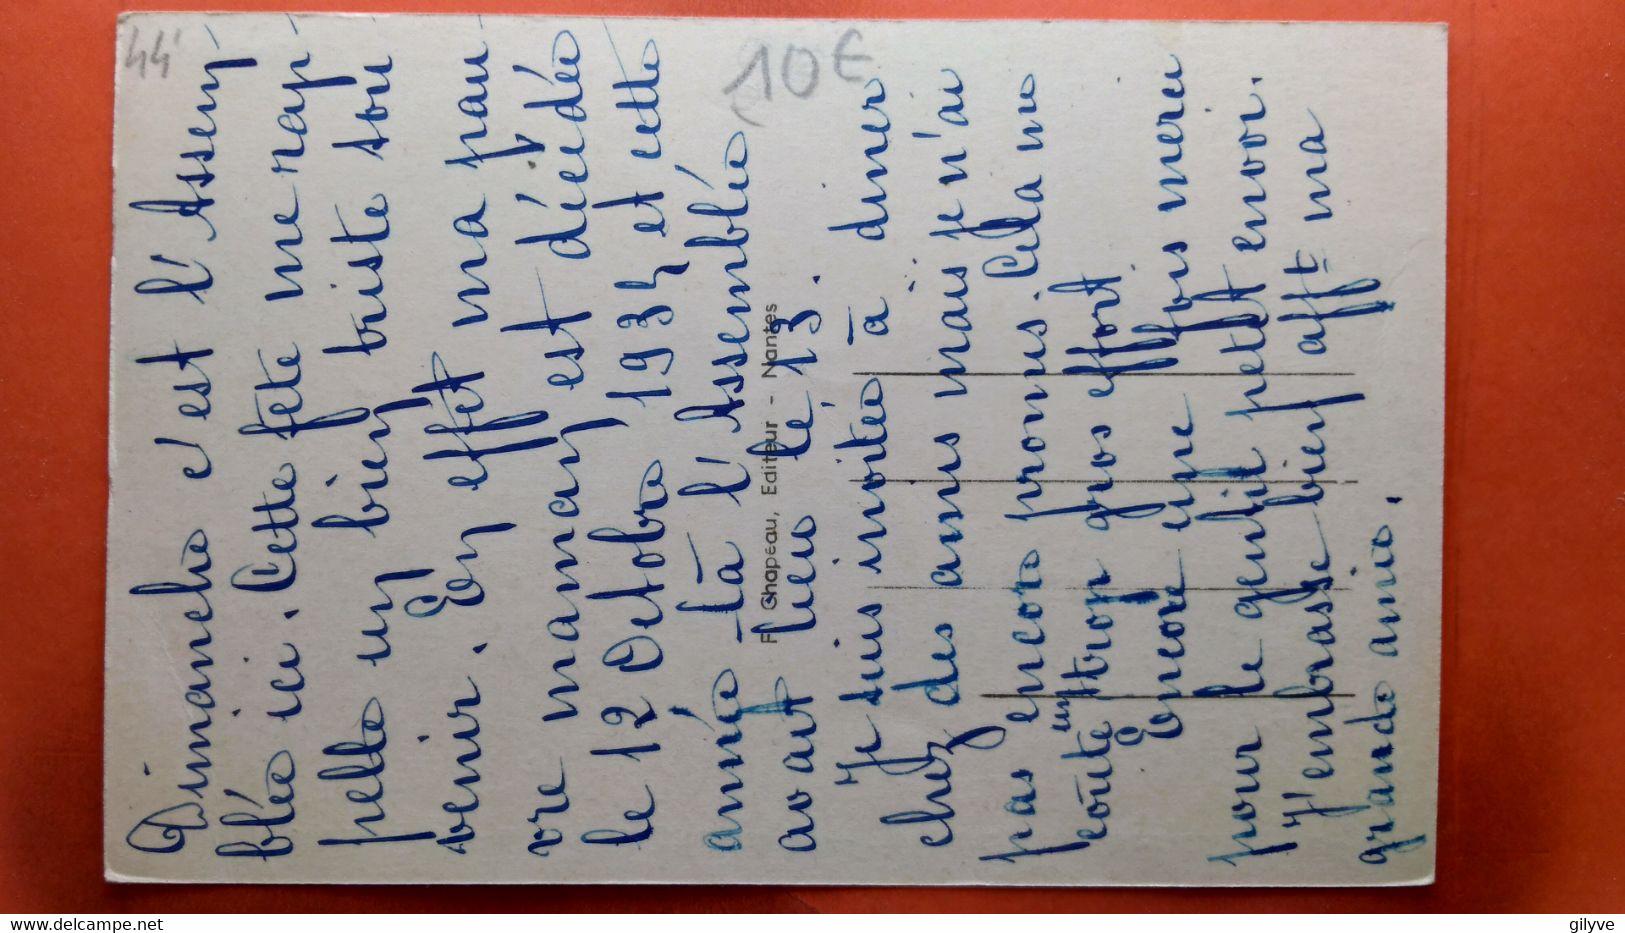 44
10€
Dimanche c'est l'Assem-
blée ici. Cette fête me rap-
pelle un bien triste sou
venir. En effet ma pau-
vre maman est décédée
le 12 Octobre 1934 et cette
année-là l'Assemblée
avait lieu le 13.
Je suis invitée à diner
chez des amis mais je n'ai
pas encore promis. Cela me
coûte un trop gros effort.
Encore une fois merci
pour le gentil petit envoi.
J'embrasse bien afft ma
grande amie.
F. Chapeau, Editeur - Nantes
gilyve